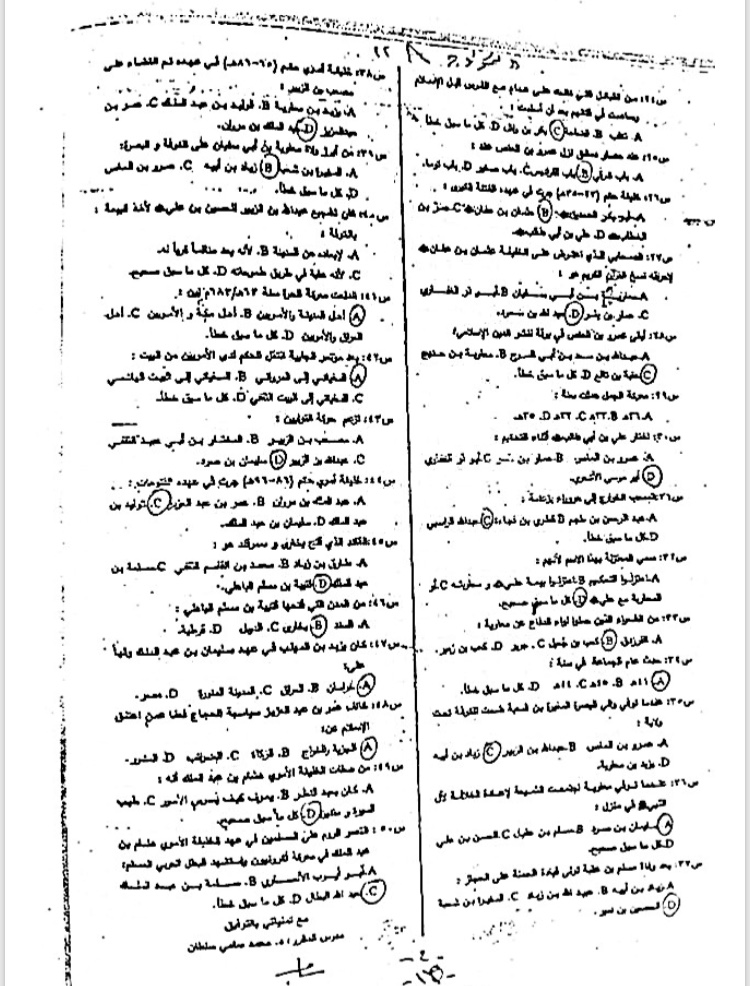 س٢٤: من القبائل التي كانت على صدام مع الفرس قبل الإسلام
وساهمت في قتالهم بعد أن أسلمت :
A. تغلب B. قضاعة C. بكر بن وائل D. كل ما سبق خطأ.
س٢٥: عند حصار دمشق نزل عمرو بن العاص عند :
A. باب شرقي B. باب الفراديس C. باب صغير D. باب توما.
س٢٦: خليفة حكم (٢٣-٣٥هـ) جرت في عهده الفتنة الكبرى :
A. أبو بكر الصديق B. عثمان بن عفان C. عمر بن
الخطاب D. علي بن أبي طالب
س٢٧: الصحابي الذي اعترض على الخليفة عثمان بن عفان
لإحراقه نسخ القرآن الكريم هو :
A. معاوية بن أبي سفيان B. أبو ذر الغفاري
C. عمار بن ياسر D. عبد الله بن مسعود.
س٢٨: أبقى عمرو بن العاص في برقة لنشر الدين الإسلامي:
A. عبدالله بن سعد بن أبي السرح B. معاوية بن حديج
C. عقبة بن نافع D. كل ما سبق خطأ.
س٢٩: معركة الجمل حدثت سنة :
A. ٣٦هـ B. ٣٣هـ C. ٣٢هـ D. ٣٥هـ.
س٣٠: اختار علي بن أبي طالب أثناء التحكيم :
A. عمرو بن العاص B. عمار بن ياسر C. أبو ذر الغفاري
D. أبو موسى الأشعري.
س٣١: انسحب الخوارج إلى حروراء بزعامة :
A. عبد الرحمن بن ملجم B. قطري بن فجاءة C. عبدالله الراسبي
D. كل ما سبق خطأ.
س٣٢: سمي المعتزلة بهذا الاسم لأنهم :
A. اعتزلوا التحكيم B. اعتزلوا بيعة علي و معاوية C. أو
المحاربة مع علي D. كل ما سبق صحيح.
س٣٣: من الشعراء الذين حملوا لواء الدفاع عن معاوية :
A. الفرزدق B. كعب بن جعيل C. جرير D. كعب بن زهير.
س٣٤: حدث عام الجماعة في سنة :
A. ٤١هـ B. ٤٥هـ C. ٤٤هـ D. كل ما سبق خطأ.
س٣٥: عندما توفي والي البصرة المغيرة بن شعبة ضمت الكوفة تحت
ولاية :
A. عمرو بن العاص B. عبدالله بن الزبير C. زياد بن أبيه
D. يزيد بن معاوية.
س٣٦: عندما توفي معاوية اجتمعت الشيعة لإعادة الخلافة لآل
النبي في منزل :
A. سليمان بن صرد B. مسلم بن عقيل C. الحسن بن علي
D. كل ما سبق صحيح.
س٣٧: بعد وفاة مسلم بن عقبة تولى قيادة الحملة على الحجاز :
A. زياد بن أبيه B. عبيد الله بن زياد C. المغيرة بن شعبة
D. الحصين بن نمير.
- 2 -
س٣٨: خليفة أموي حكم (٦٥-٨٦هـ) في عهده تم القضاء على
مصعب بن الزبير :
A. يزيد بن معاوية B. الوليد بن عبد الملك C. عمر بن
عبدالعزيز D. عبد الملك بن مروان.
س٣٩: من أبرز ولاة معاوية بن أبي سفيان على الكوفة و البصرة:
A. المغيرة بن شعبة B. زياد بن أبيه C. عمرو بن العاص
D. كل ما سبق خطأ.
س٤٠: كان تشجيع عبدالله بن الزبير الحسين بن علي لأخذ البيعة
بالكوفة :
A. لإبعاده عن المدينة B. لأنه يعد منافساً قوياً له
C. لأنه عقبة في طريق طموحاته D. كل ما سبق صحيح.
س٤١: اندلعت معركة الحرة سنة ٦٣هـ/٦٨٣م بين :
A. أهل المدينة والأمويين B. أهل مكة و الأمويين C. أهل
العراق والأمويين D. كل ما سبق خطأ.
س٤٢: بعد مؤتمر الجابية انتقل الحكم لدى الأمويين من البيت :
A. السفياني إلى المرواني B. السفياني إلى البيت الهاشمي
C. السفياني إلى البيت الثقفي D. كل ما سبق خطأ.
س٤٣: تزعم حركة التوابين :
A. مصعب بن الزبير B. المختار بن أبي عبيد الثقفي
C. عبدالله بن الزبير D. سليمان بن صرد.
س٤٤: خليفة أموي حكم (٨٦-٩٦هـ) جرت في عهده الفتوحات:
A. عبد الملك بن مروان B. عمر بن عبد العزيز C. الوليد بن
عبد الملك D. سليمان بن عبد الملك.
س٤٥: القائد الذي فتح بخارى و سمرقند هو :
A. طارق بن زياد B. محمد بن القاسم الثقفي C. مسلمة بن
عبد الملك D. قتيبة بن مسلم الباهلي.
س٤٦: من المدن التي فتحها قتيبة بن مسلم الباهلي :
A. السند B. بخارى C. الديبل D. قرطبة.
س٤٧: كان يزيد بن المهلب في عهد سليمان بن عبد الملك والياً
على:
A. خراسان B. العراق C. المدينة المنورة D. مصر.
س٤٨: خالف عمر بن عبد العزيز سياسية الحجاج فعفا عمن اعتنق
الإسلام عن:
A. الجزية والخراج B. الزكاة C. الضرائب D. العشور.
س٤٩: من صفات الخليفة الأموي هشام بن عبد الملك أنه :
A. كان بعيد النظر B. يعرف كيف يسوس الأمور C. طيب
السيرة و متدين D. كل ما سبق صحيح.
س٥٠: انتصر الروم على المسلمين في عهد الخليفة الأموي هشام بن
عبد الملك في معركة أكرونيون باستشهد البطل العربي المسلم:
A. أبو أيوب الأنصاري B. مسلمة بن عبد الملك
C. عبد الله البطال D. كل ما سبق خطأ.
مع تمنياتي بالتوفيق
مدرس المقرر: د. محمد سامي سلطان